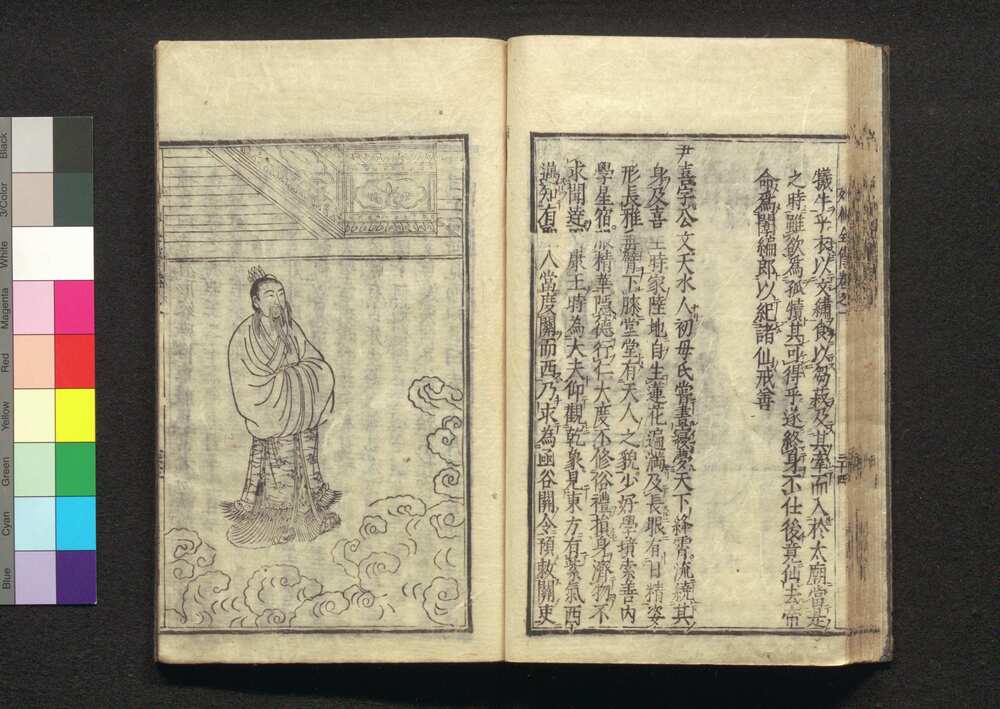 犧牛乎衣以文繡食以芻菽及其牽而入於太廟當是
之時雖欲為孤犢其可得乎遂終身不仕後竟仙去
命為闈編郎以紀諸仙戒善
尹喜字公文天水人初母氏嘗晝寢夢天下絳霄流繞其
身及喜生時家陸地自生蓮花遍滿及長眼有日精姿
形長雅垂臂下膝堂堂有天人之貌少好學墳索善內
學星宿服精華隱德行仁大度不修俗禮損身濟物不
求聞達 康王時為大夫仰觀乾象見東方有紫氣西
邁知有 人當度關而西乃求為函谷關令預敕關吏
Black
3/Color
White
Magenta
Red
Yellow
Green
Cyan
Blue